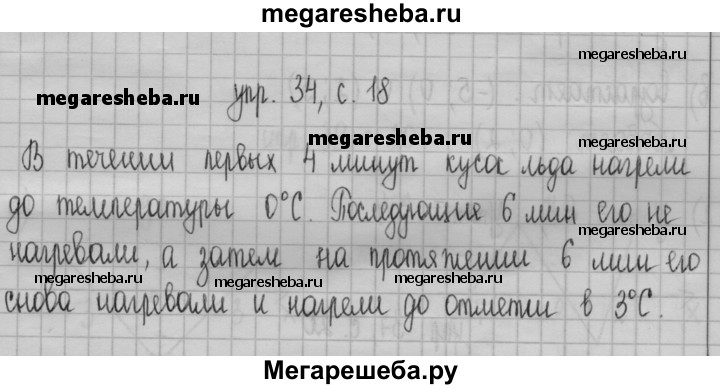 megaresheba.ru
megaresheba.ru
megaresheba.ru
упр. 34, с. 18
megaresheba.ru
megaresheba.ru
В течении первых 4 минут кусок льда нагрели
megaresheba.ru
до температуры 0°С. Последующие 6 мин его не
megaresheba.ru
нагревали, а затем на протяжении 6 мин его
megaresheba.ru megaresheba.ru megaresheba.ru megaresheba.ru
снова нагревали и нагрели до отметки в 3°С.
Мегарешеба.ру